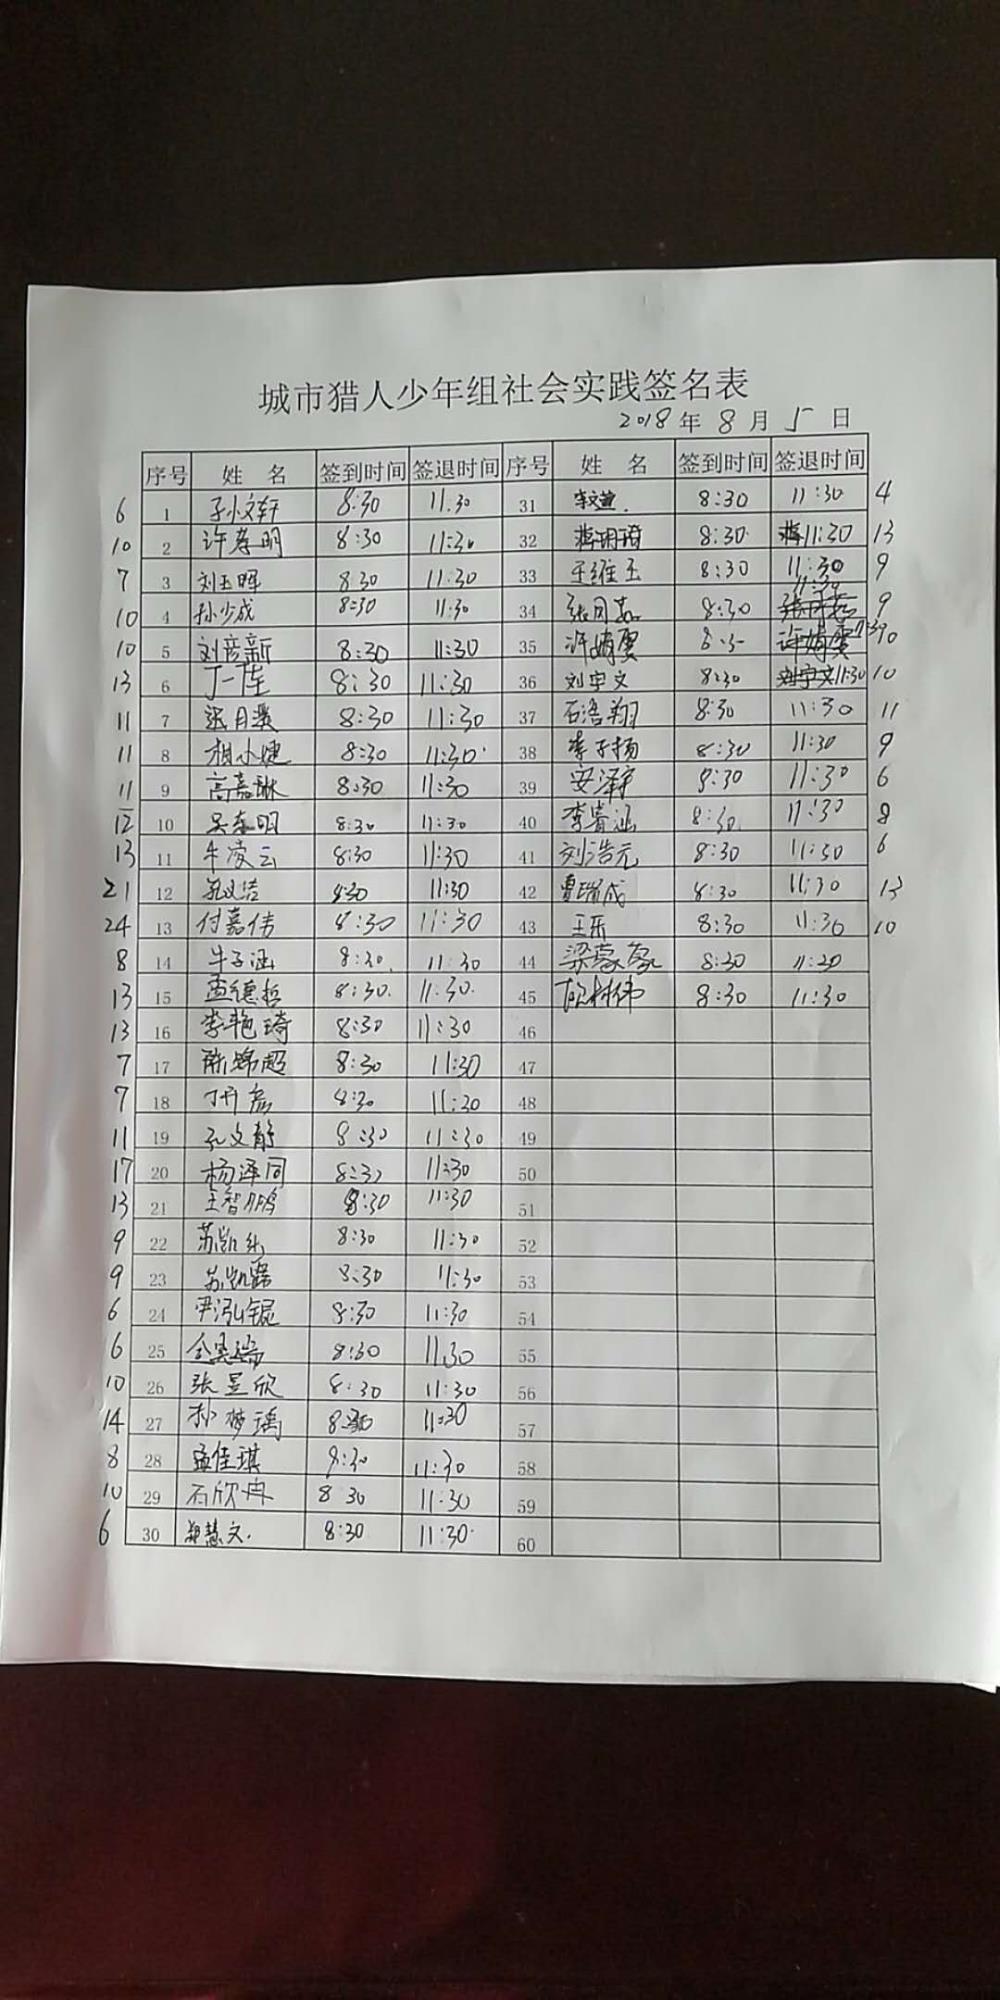 城市猎人少年组社会实践签名表
2018年8月5日
序号 姓 名 签到时间 签退时间 序号 姓 名 签到时间 签退时间
6 1 8:30 11:30 31 8:30 11:30 4
10 2 许孝明 8:30 11:30 32 蒋玥琦 8:30 11:30 13
7 3 刘玉晖 8:30 11:30 33 王维玉 8:30 11:30 9
10 4 孙少成 8:30 11:30 34 8:30 11:30 9
10 5 刘彦新 8:30 11:30 35 许婧雯 许婧雯 10
13 6 8:30 11:30 36 刘宇文 8:30 刘宇文 11:30 10
11 7 张月溪 8:30 11:30 37 石浩翔 8:30 11:30 11
11 8 相小婕 8:30 11:30 38 李子扬 8:30 11:30 9
11 9 高嘉琳 8:30 11:30 39 安泽宇 8:30 11:30 6
12 10 吴东明 8:30 11:30 40 李胥涵 8:30 11:30 8
13 11 牛凌云 8:30 11:30 41 刘浩元 8:30 11:30 6
21 12 孔文洁 8:30 11:30 42 曹瑞成 8:30 11:30 13
24 13 付嘉伟 8:30 11:30 43 王乐 8:30 11:30 10
8 14 牛子涵 8:30 11:30 44 梁蒙蒙 8:30 11:30
13 15 孟德哲 8:30 11:30 45 8:30 11:30
13 16 李艳琦 8:30 11:30 46
7 17 8:30 11:30 47
7 18 8:30 11:30 48
11 19 孔文静 8:30 11:30 49
17 20 杨泽同 8:30 11:30 50
13 21 王智鹏 8:30 11:30 51
9 22 苏凯乐 8:30 11:30 52
9 23 苏凯露 8:30 11:30 53
6 24 尹泓锟 8:30 11:30 54
6 25 8:30 11:30 55
10 26 张昱欣 8:30 11:30 56
14 27 朴梦瑶 8:30 11:30 57
8 28 孟佳琪 8:30 11:30 58
10 29 石欣冉 8 30 11:30 59
6 30 郑慧文 8:30 11:30 60